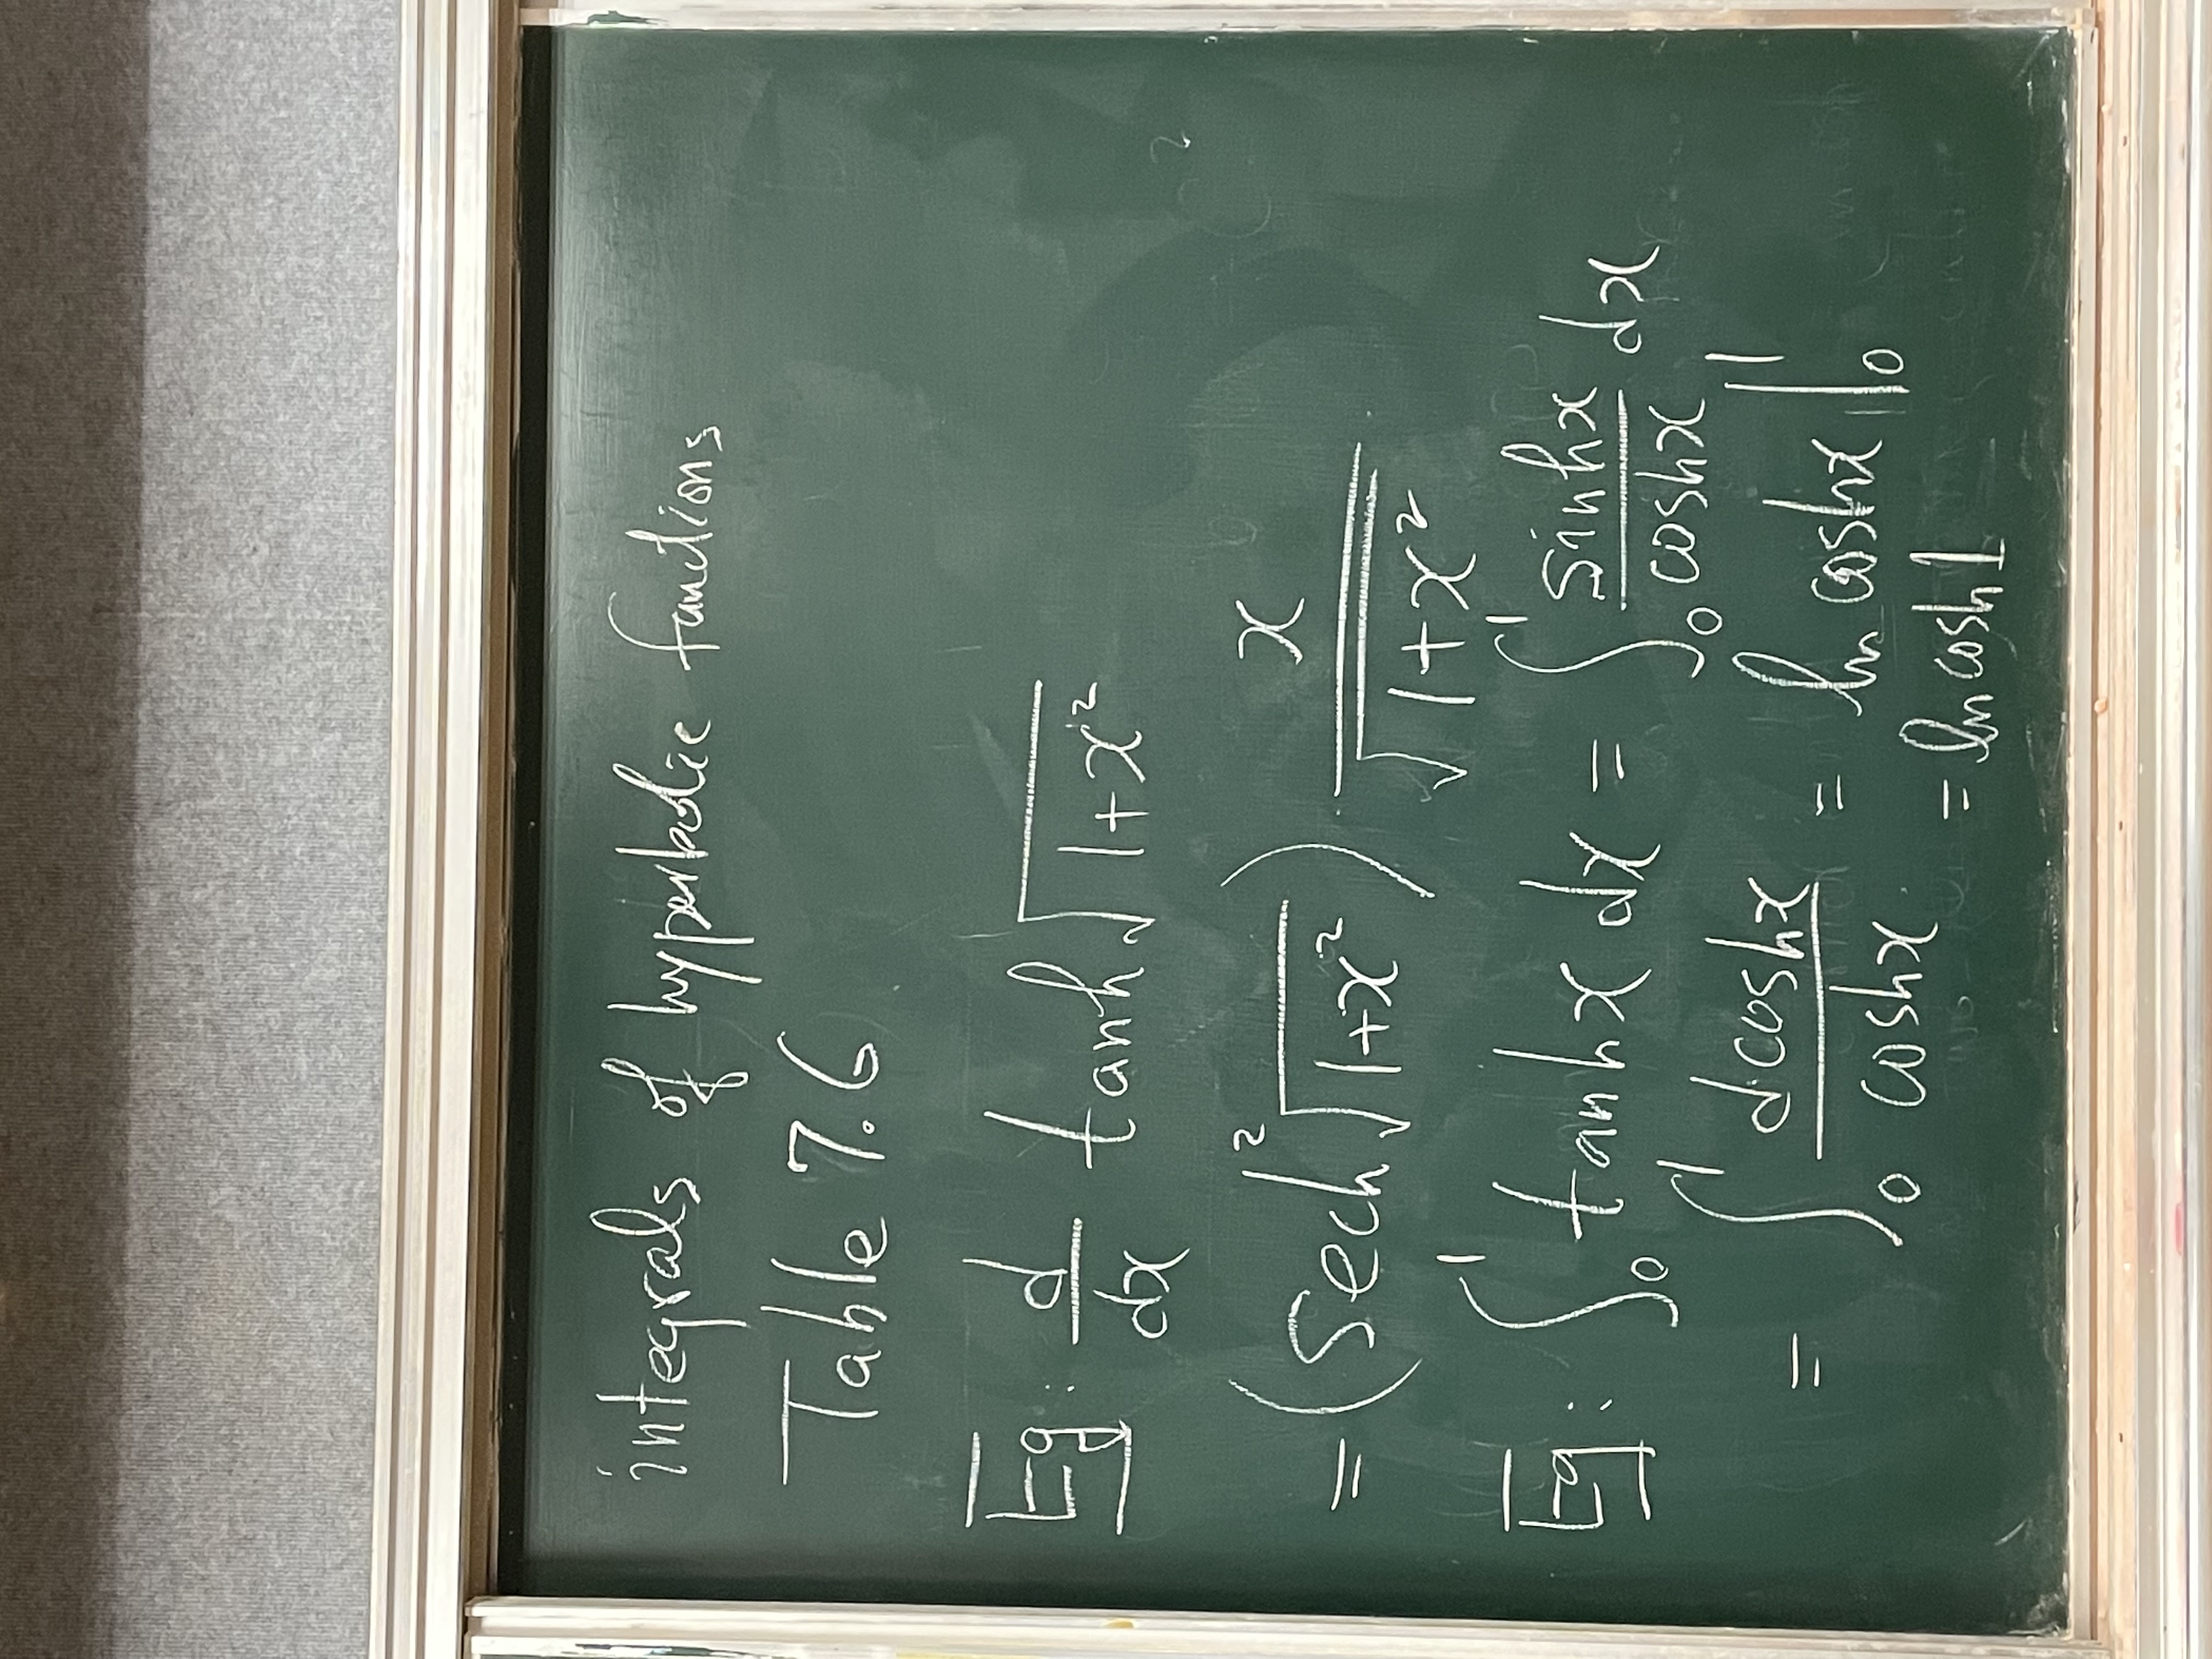 integrals of hyperbolic functions
Table 7.6
Eg: d/dx tanh√(1+x²)
= (Sech²√(1+x²)) x/√(1+x²)
Eg: ∫₀¹ tanhx dx = ∫₀¹ sinhx/coshx dx
= ∫₀¹ dcoshx/coshx = ln coshx |₀¹
= ln cosh1